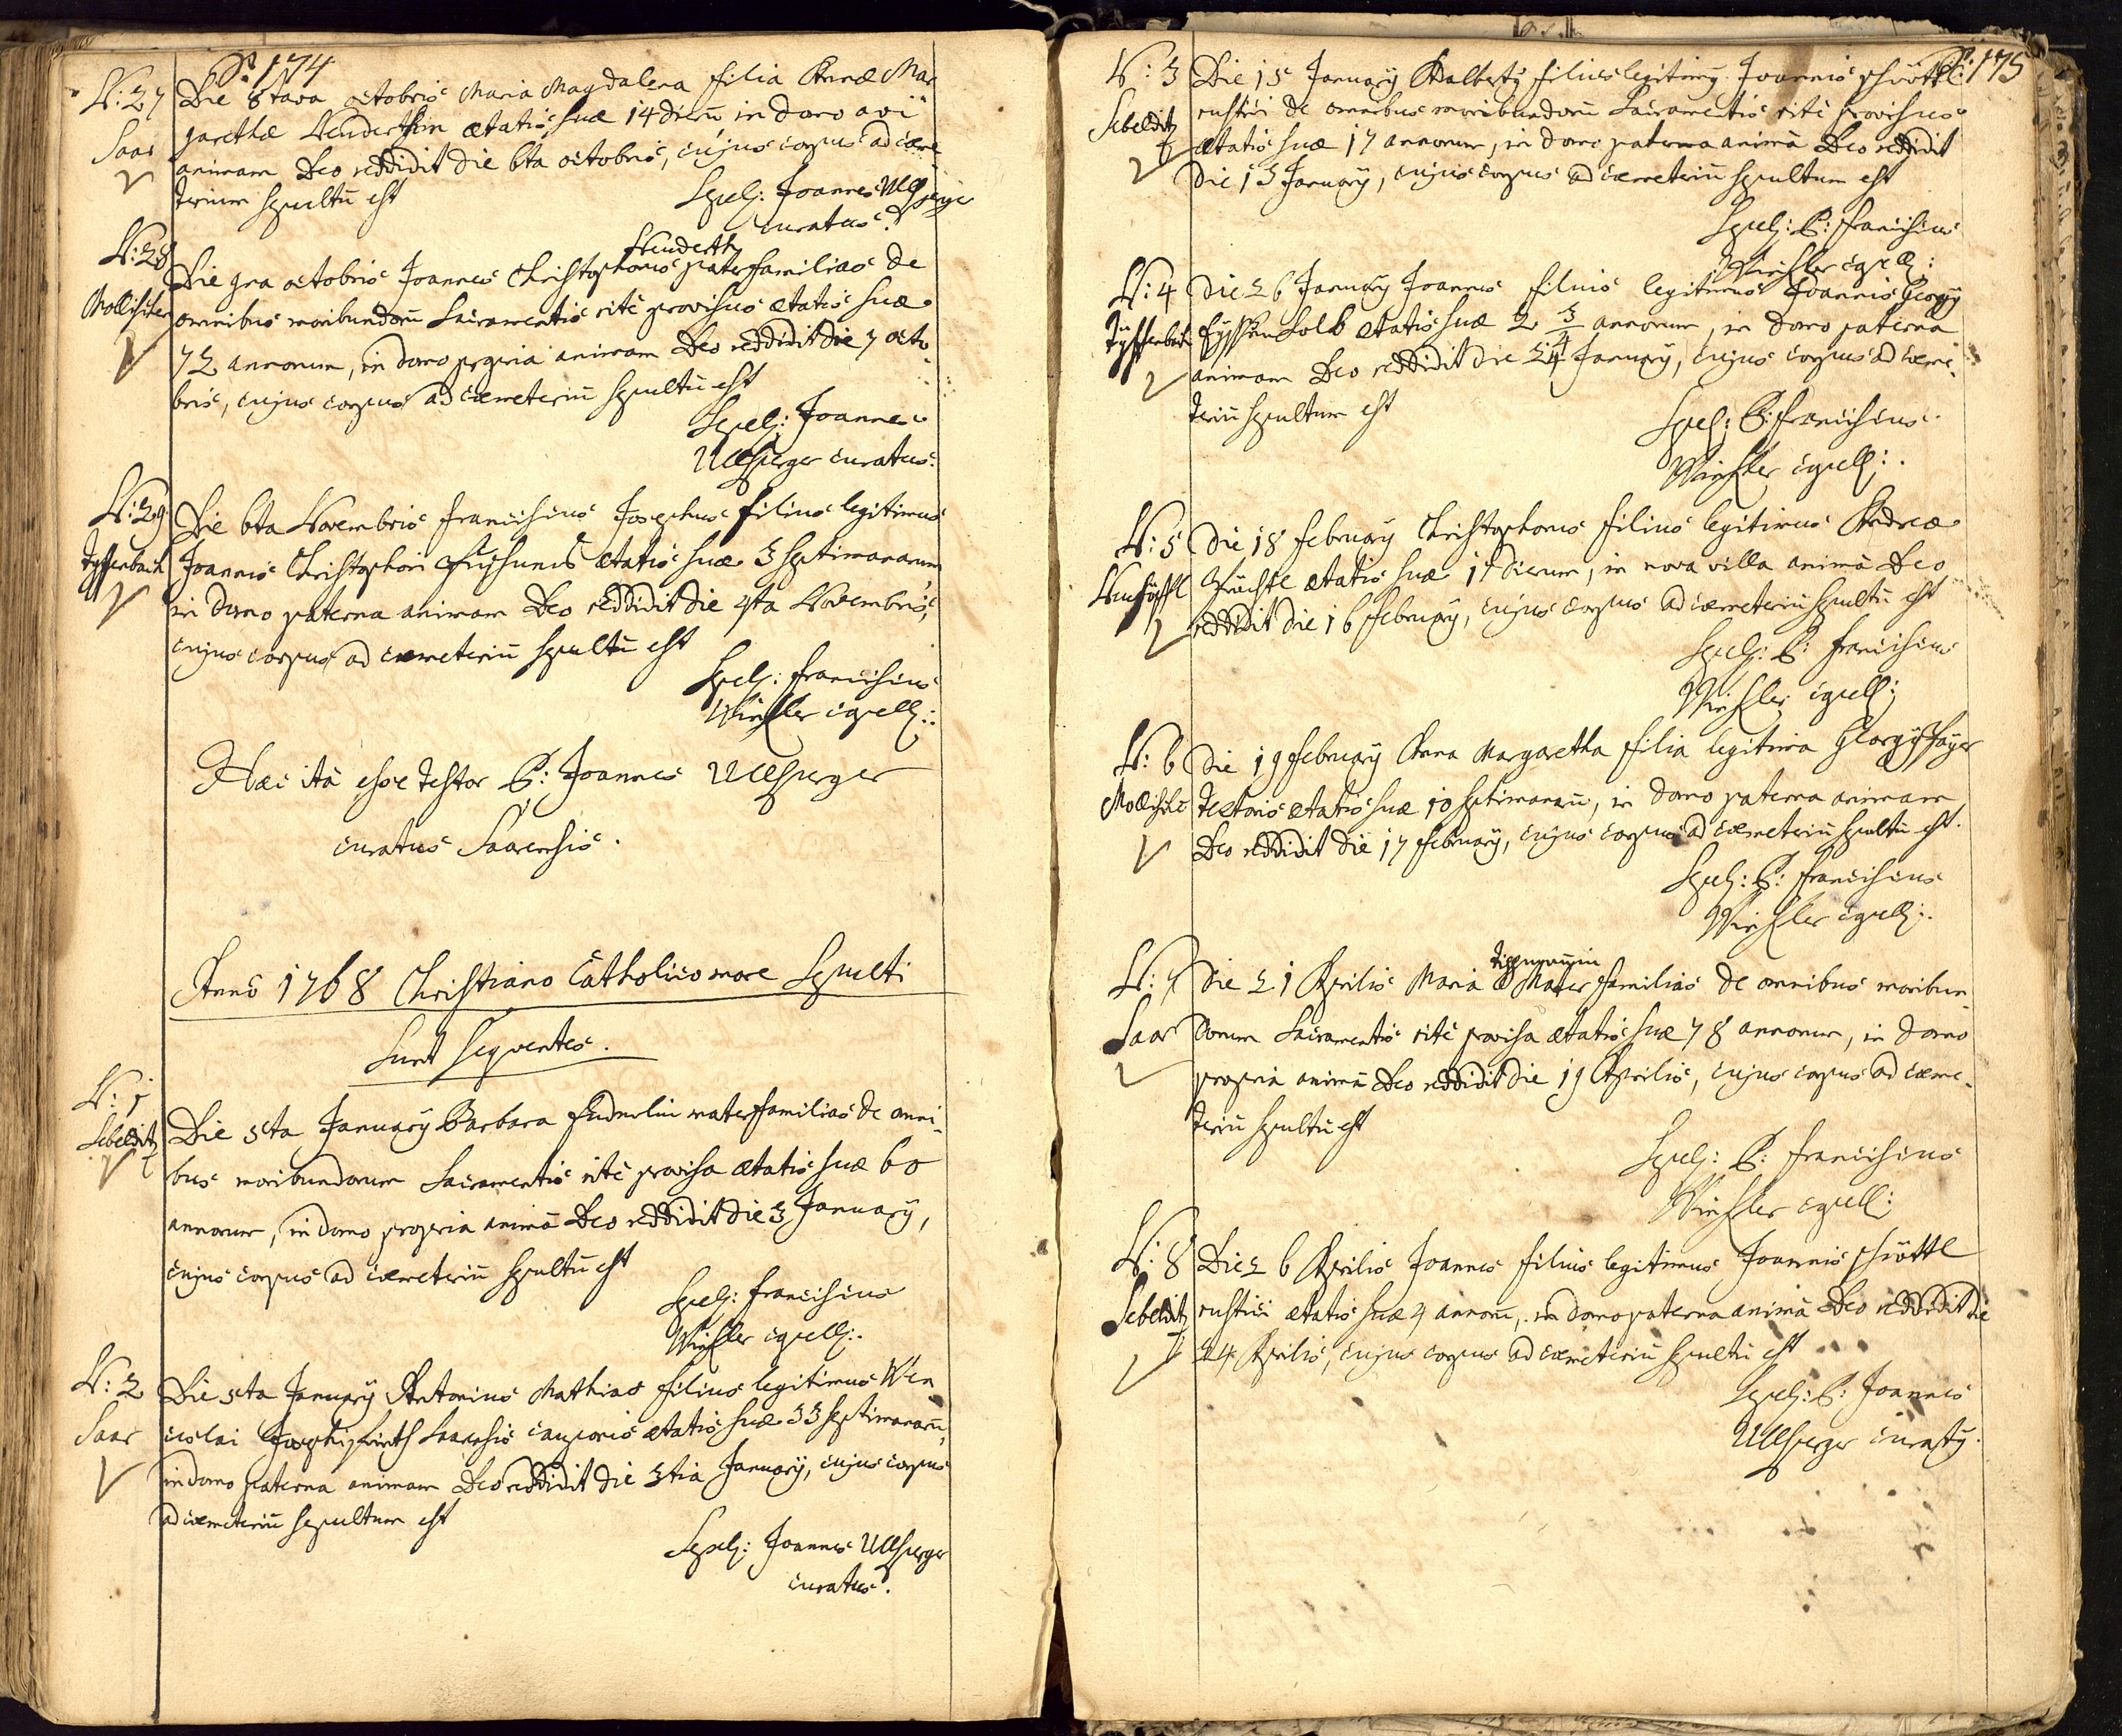 P: 174
N: 27
Saar
Die 8tava octobris Maria Magdalena filia Annæ Mar
garethæ ætatis suæ 14 dierū in domo avi
animam Deo reddidit die 6ta octobris, cujus corpus ad cæme
terium sepultū est
Sepel: Joannes Ullsperger
curatus.
N: 28
Henderth
Die 9na octobris Joannes Christophorus paterfamilias de
omnibus moribundorū Sacramentis rite provisus ætatis suæ
72 annorum, in domo propria animam Deo reddidit die 7 octo
bris, cujus corpus ad cæmeteriū sepultū est
Sepel: Joannes
Ullsperger curatus.
N: 29
Die 6ta Novembris Franciscus Josephus filius legitimus
Joannis Christophori ætatis suæ 3 septimanarum
in domo paterna animam Deo reddidit die 4ta Novembris,
cujus corpus ad cæmeteriū sepultū est
Sepel: Franciscus
Winkler capell:
Hæc ita esse testor P: Joannes Ullsperger
curatus Saarensis.
Anno 1768 Christiano Catholico more Sepulti
Sunt sequentes.
N: 1
Sebelditz
Die 5ta Januarÿ Barbara materfamilias de omni-
bus moribundorum Sacramentis rite provisa ætatis suæ 60
annorum, in domo propria animā Deo reddidit die 3 Januarÿ,
cujus corpus ad cæmeteriū sepultū est
Sepel: Franciscus
Winkler capell:
N: 2
Saar
Die 5ta Januarÿ Antonius Mathias filius legitimus Wen
ceslai Josephi Saarensis cauponis ætatis suæ 33 septimanarū,
in domo paterna animam Deo reddidit die 3tia Januarÿ, cujus corpus
ad cæmeteriū sepultum est
Sepel: Joannes Ullsperger
curatus.
P: 175
N: 3
Sebelditz
Die 15 Januarÿ Adalbertÿ filius legitimÿ Joannis Schröttl
rustici de omnibus moribundorū Sacramentis rite provisus
ætatis suæ 17 annorum, in domo paterna animā Deo reddidit
die 13 Januarÿ, cujus corpus ad cæmeteriū sepultum est
Sepel: P: Franciscus
Winkler capell:
N: 4
Die 26 Januarÿ Joannes filius legitimus Joannis Georgÿ
ætatis suæ 2 3/4 annorum, in domo paterna
animam Deo reddidit die 24 Januarÿ, cujus corpus ad cæme-
teriū sepultum est
Sepel: P: Franciscus
Winkler capell:
N: 5
Die 18 Februarÿ Christophorus filius legitimus Andreæ
ætatis suæ 17 dierum, in nova villa animā Deo
reddidit die 16 Februarÿ, cujus corpus ad cæmeteriū sepultū est
Sepel: P: Franciscus
Winkler capell:
N: 6
Die 19 Februarÿ Anna Margaretha filia legitima Georgÿ
textoris ætatis suæ 10 septimanarū, in domo paterna animam
Deo reddidit die 17 Februarÿ, cujus corpus ad cæmeteriū sepultū est.
Sepel: P: Franciscus
Winkler capell:
N: 7
Saar
Die 21 Aprilis Maria Materfamilias de omnibus moribun-
dorum Sacramentis rite provisa ætatis suæ 78 annorum, in domo
propria animā Deo reddidit die 19 Aprilis, cujus corpus ad cæme-
teriū sepultū est
Sepel: P: Franciscus
Winkler capell:
N: 8
Sebelditz
Die 26 Aprilis Joannes filius legitimus Joannis Schröttl
rustici ætatis suæ 4 annorū, in domo paterna animā Deo reddidit die
24 Aprilis, cujus corpus ad cæmeteriū sepultū est
Sepel: P: Joannes
Ullsperger curatÿ.